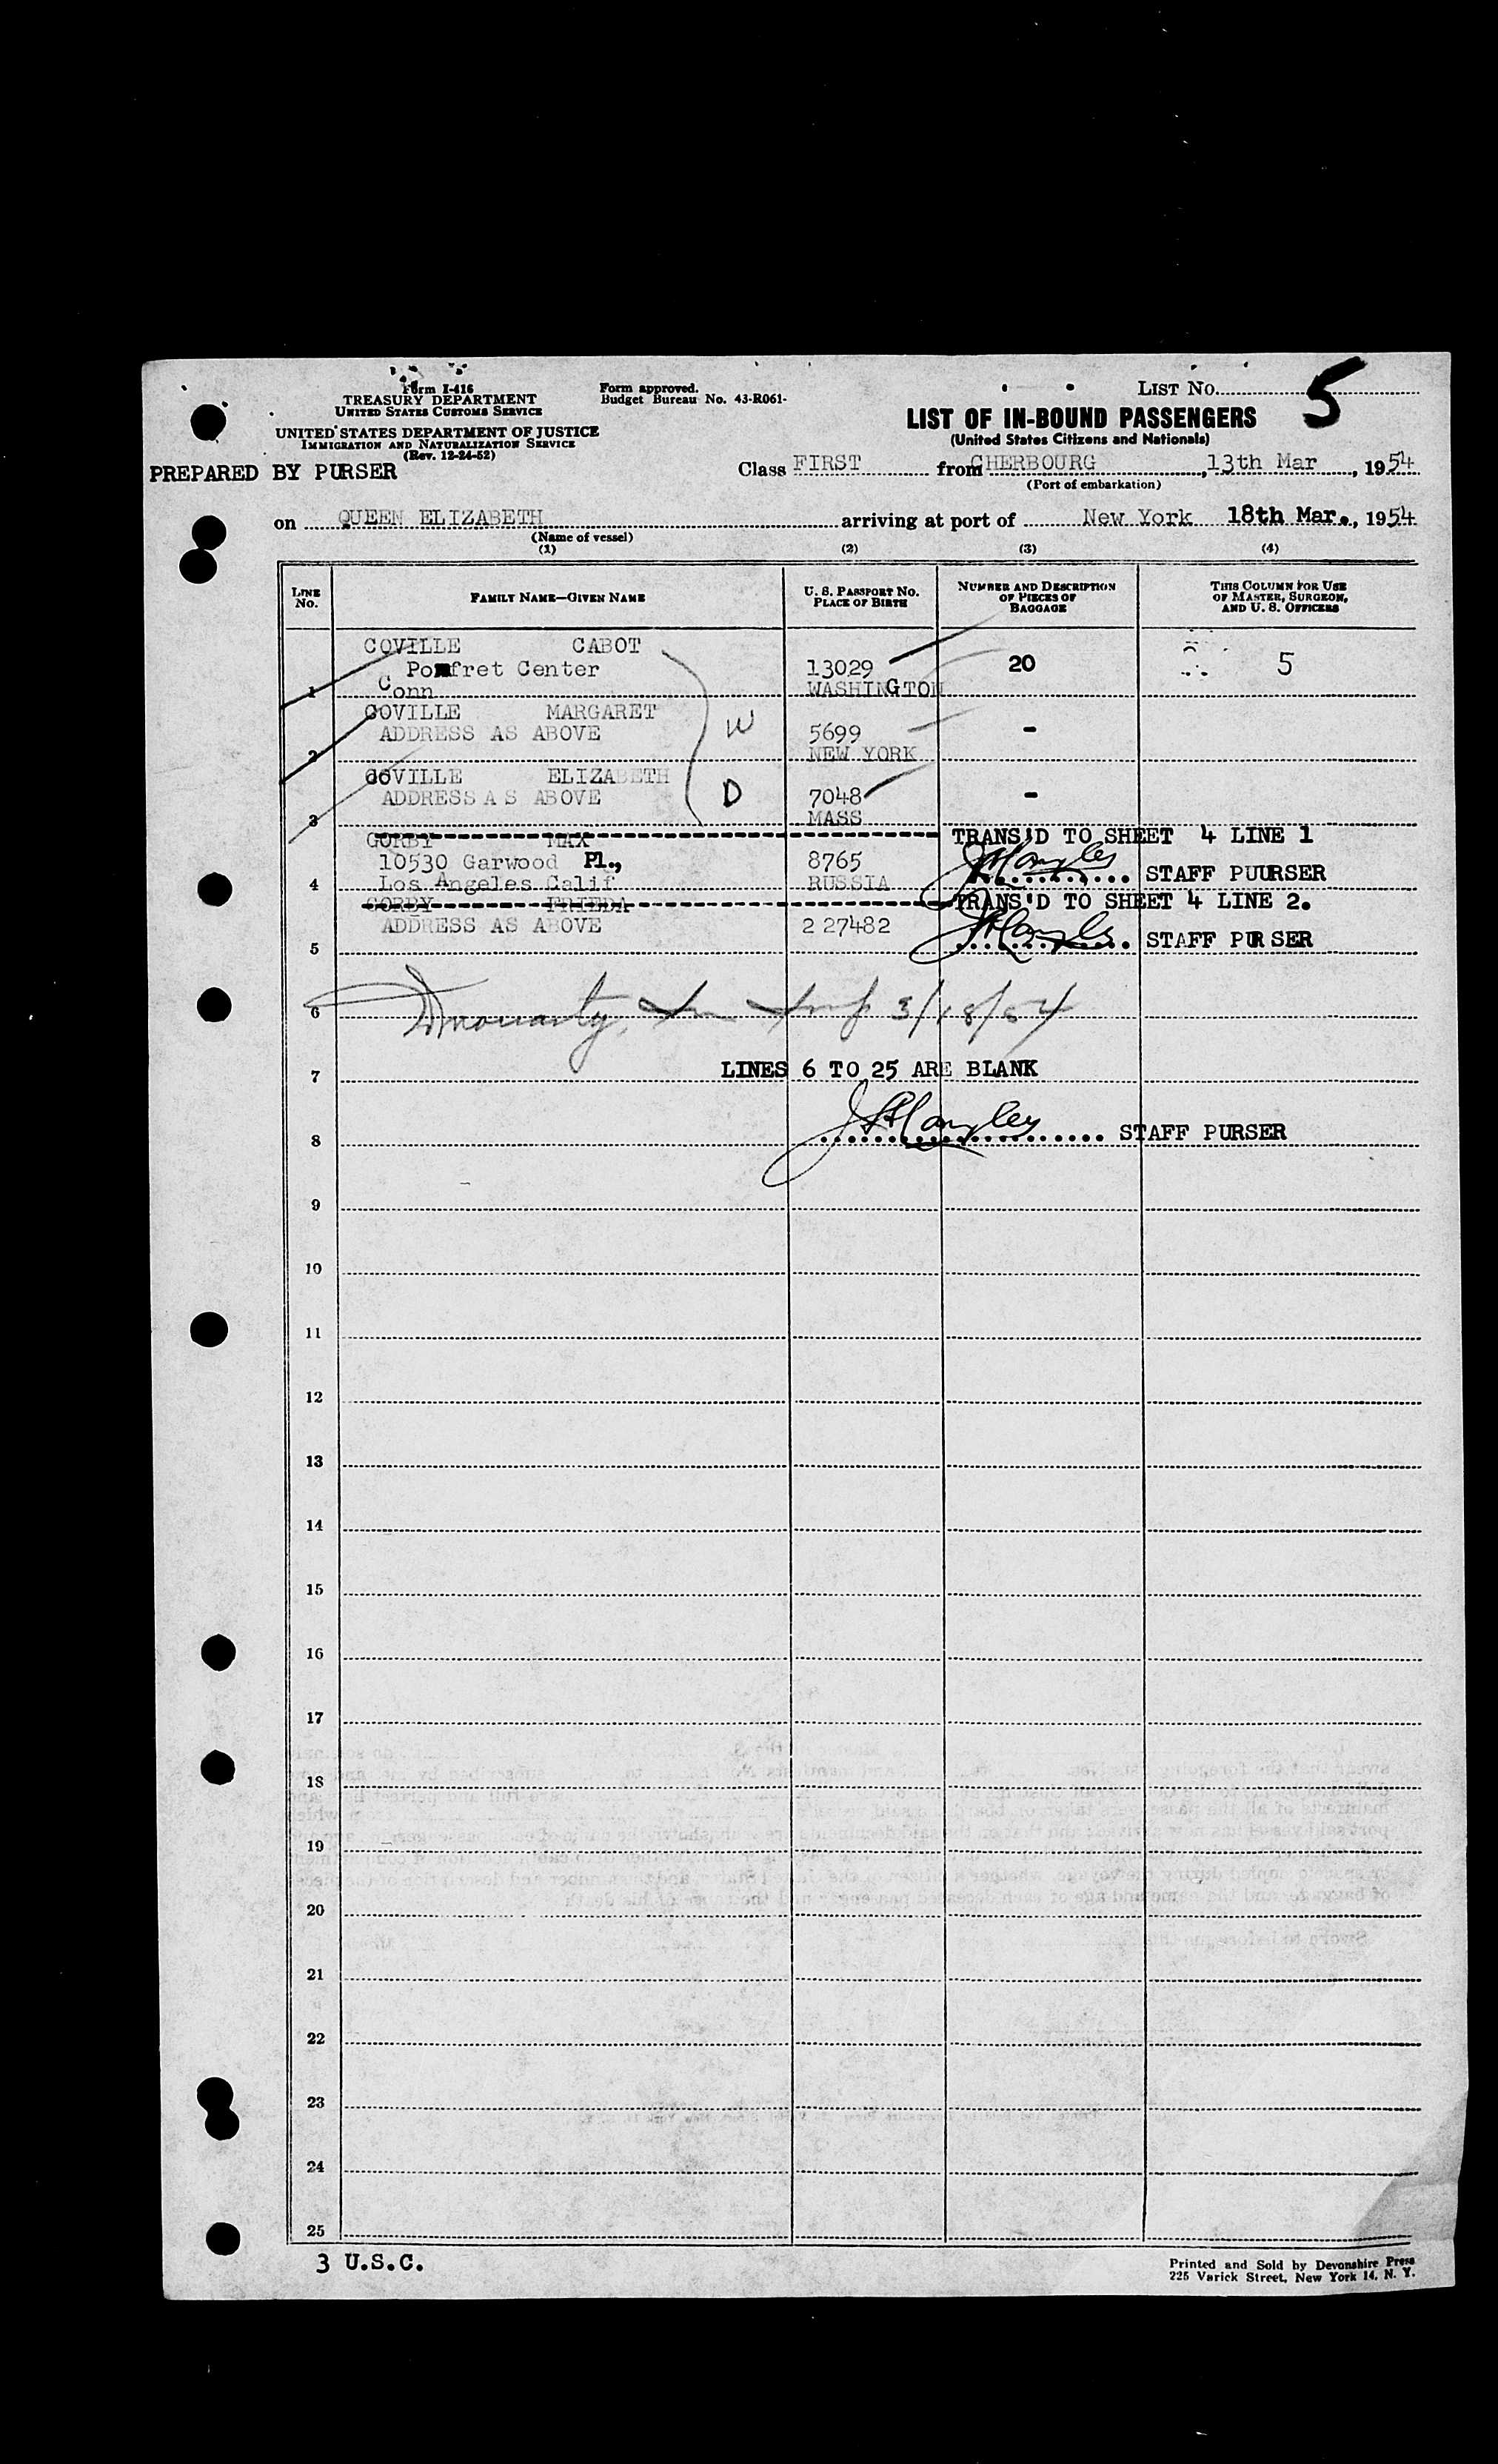 Form I-416
TREASURY DEPARTMENT
UNITED STATES CUSTOMS SERVICE
UNITED STATES DEPARTMENT OF JUSTICE
IMMIGRATION AND NATURALIZATION SERVICE
(Rev. 12-24-52)
PREPARED BY PURSER
Form approved.
Budget Bureau No. 43-R061-
LIST No. 5
LIST OF IN-BOUND PASSENGERS
(United States Citizens and Nationals)
Class FIRST from CHERBOURG, 13th Mar, 1954
(Port of embarkation)
on QUEEN ELIZABETH arriving at port of New York 18th Mar., 1954
(Name of vessel)
(1) (2) (3) (4)
LINE No. FAMILY NAME—GIVEN NAME U. S. PASSPORT No. PLACE OF BIRTH NUMBER AND DESCRIPTION OF PIECES OF BAGGAGE THIS COLUMN FOR USE OF MASTER, SURGEON, AND U. S. OFFICERS
COVILLE CABOT
Pomfret Center 13029 20 5
1 Conn WASHINGTON
COVILLE MARGARET W
ADDRESS AS ABOVE 5699 -
2 NEW YORK
COVILLE ELIZABETH
ADDRESS A S ABOVE D 7048 -
3 MASS
GORBY MAX TRANS'D TO SHEET 4 LINE 1
10530 Garwood Pl., 8765 STAFF PUURSER
4 Los Angeles Calif RUSSIA
GORBY FRIEDA TRANS'D TO SHEET 4 LINE 2.
ADDRESS AS ABOVE 2 27482 STAFF PURSER
5
6 3/18/54
7 LINES 6 TO 25 ARE BLANK
8 JHLangley STAFF PURSER
9
10
11
12
13
14
15
16
17
18
19
20
21
22
23
24
25
3 U.S.C.
Printed and Sold by Devonshire Press
225 Varick Street, New York 14, N. Y.